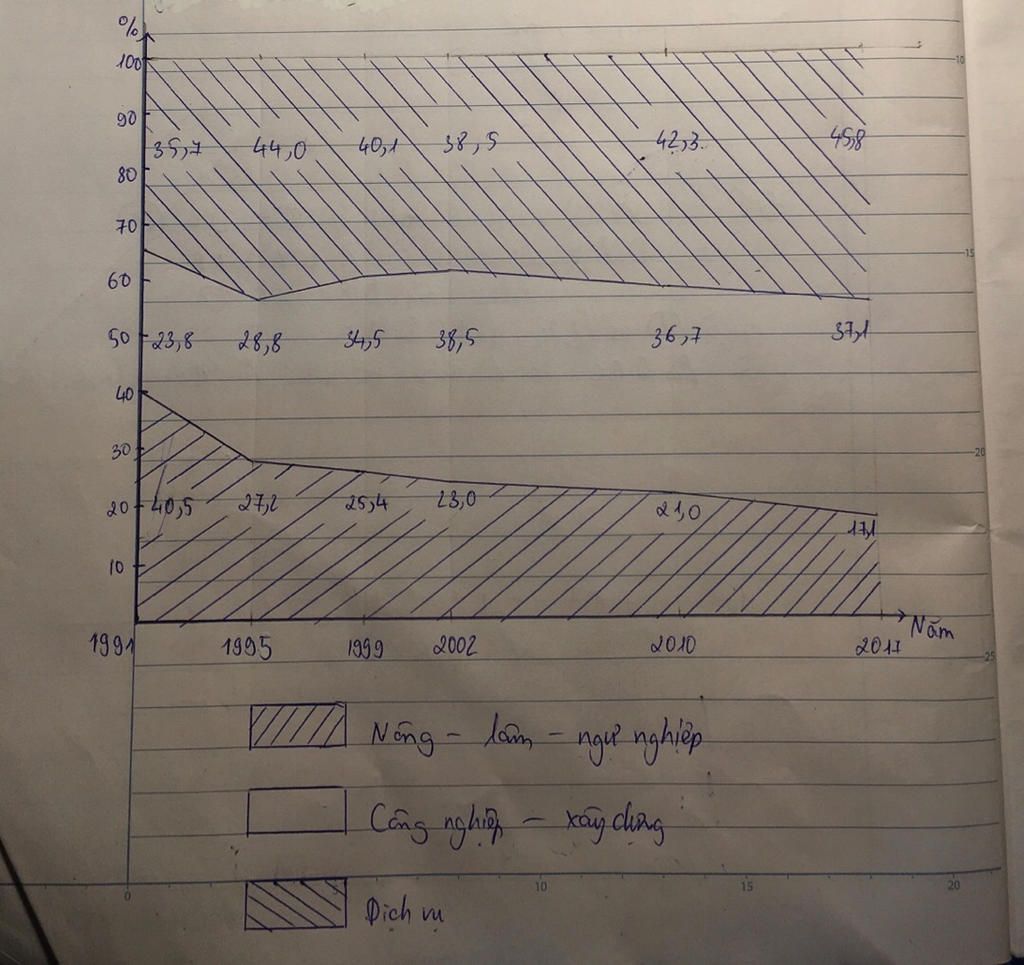 %
100
90
35,7 44,0 40,1 38,5 42,3 45,8
80
70
60
50 23,8 28,8 34,5 38,5 36,7 37,1
40
30
20 40,5 27,2 25,4 23,0 21,0 17,1
10
1991 1995 1999 2002 2010 2017 Năm
Nông – lâm – ngư nghiệp
Công nghiệp – xây dựng
Dịch vụ
10
15
20
25
0 10 15 20